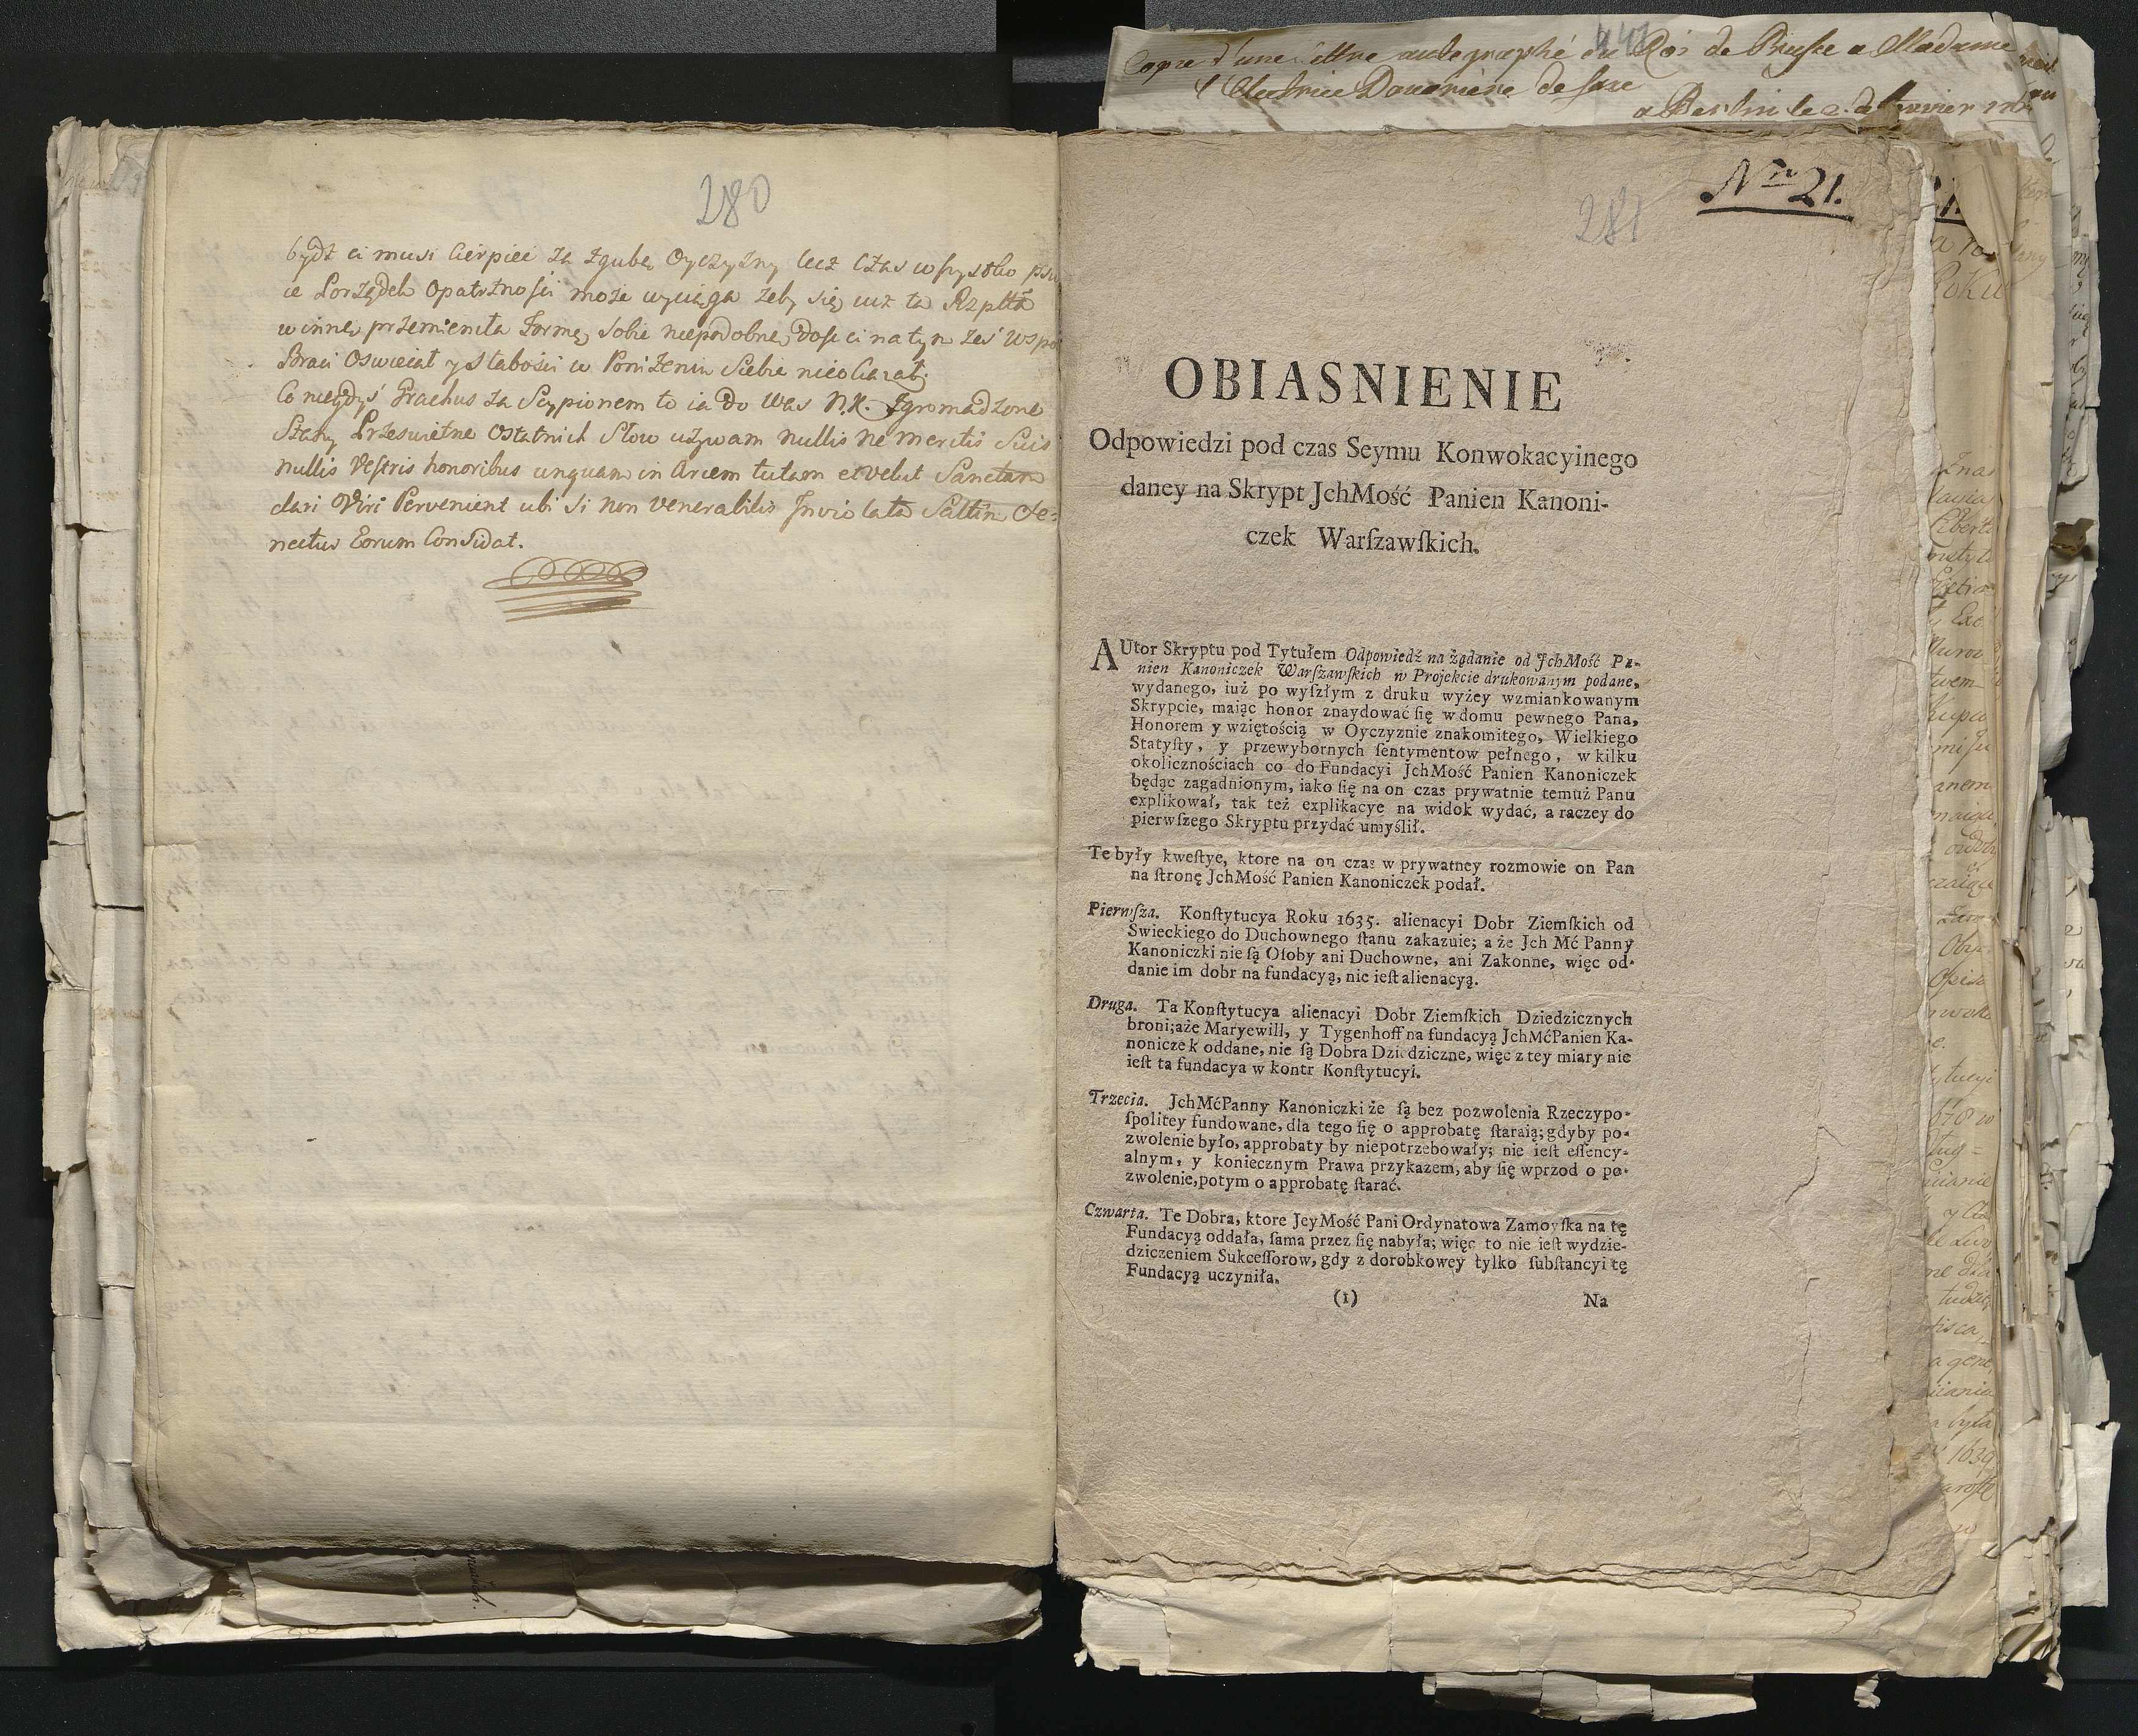 280
bydź ci musi cierpiec za zgubę Oyczyzny lecz Czas wszystko psu
ie Porządek Opatrznosci może wyciąga żeby się iuż ta Rzplta
w inne przemieniła Formę Sobie niepodobne, dosc ci na tyn
Braci y Słabości w Poniżeniu Siebie
Co niegdyś Grachus za Scypionem to ia do Was N.K. Zgromadzone
Stany Prześwietne Ostatnich Słow używam nullis ne meretis Suis
nullis Vestris honoribus unquam in Arcem tutam et velut Sanctam
clari Viri Pervenient ubi Si non Venerabilis Inviolata Saltim Se=
nectus Eorum Considat.
Copie d'une lettre autographé du Roi de Prusse a Madame
l'Electrice Douariere de Saxe
a Berlin le 2.
Nro 21.
281
OBIASNIENIE
Odpowiedzi pod czas Seymu Konwokacyinego
daney na Skrypt JchMość Panien Kanoni-
czek Warſzawſkich.
AUtor Skryptu pod Tytułem Odpowiedź na żądanie od JchMość Pa-
nien Kanoniczek Warſzawſkich w Projekcie drukowanym podane,
wydanego, iuż po wyſzłym z druku wyżey wzmiankowanym
Skrypcie, maiąc honor znaydować ſię w domu pewnego Pana,
Honorem y wziętością w Oyczyznie znakomitego, Wielkiego
Statyſty, y przewybornych ſentymentow pełnego, w kilku
okolicznościach co do Fundacyi JchMość Panien Kanoniczek
będąc zagadnionym, iako ſię na on czas prywatnie temuż Panu
explikował, tak też explikacye na widok wydać, a raczey do
pierwſzego Skryptu przydać umyślił.
Te były kweſtye, ktore na on czas w prywatney rozmowie on Pan
na ſtronę JchMość Panien Kanoniczek podał.
Pierwſza. Konſtytucya Roku 1635. alienacyi Dobr Ziemſkich od
Swieckiego do Duchownego ſtanu zakazuie; a że Jch Mć Panny
Kanoniczki nie ſą Oſoby ani Duchowne, ani Zakonne, więc od-
danie im dobr na fundacyą, nie ieſt alienacyą.
Druga. Ta Konſtytucya alienacyi Dobr Ziemſkich Dziedzicznych
broni;aże Maryewill, y Tygenhoff na fundacyą JchMćPanien Ka-
noniczek oddane, nie ſą Dobra Dziedziczne, więc z tey miary nie
ieſt ta fundacya w kontr Konſtytucyi.
Trzecia. JchMćPanny Kanoniczki że ſą bez pozwolenia Rzeczypo-
ſpolitey fundowane, dla tego ſię o approbatę ſtaraią; gdyby po-
zwolenie było, approbaty by niepotrzebowały; nie ieſt eſſency-
alnym, y koniecznym Prawa przykazem, aby ſię wprzod o po-
zwolenie,potym o approbatę ſtarać.
Czwarta. Te Dobra, ktore JeyMość Pani Ordynatowa Zamoyſka na tę
Fundacyą oddała, ſama przez ſię nabyła; więc to nie ieſt wydzie-
dziczeniem Sukceſſorow, gdy z dorobkowey tylko ſubſtancyi tę
Fundacyą uczyniła.
(1) Na